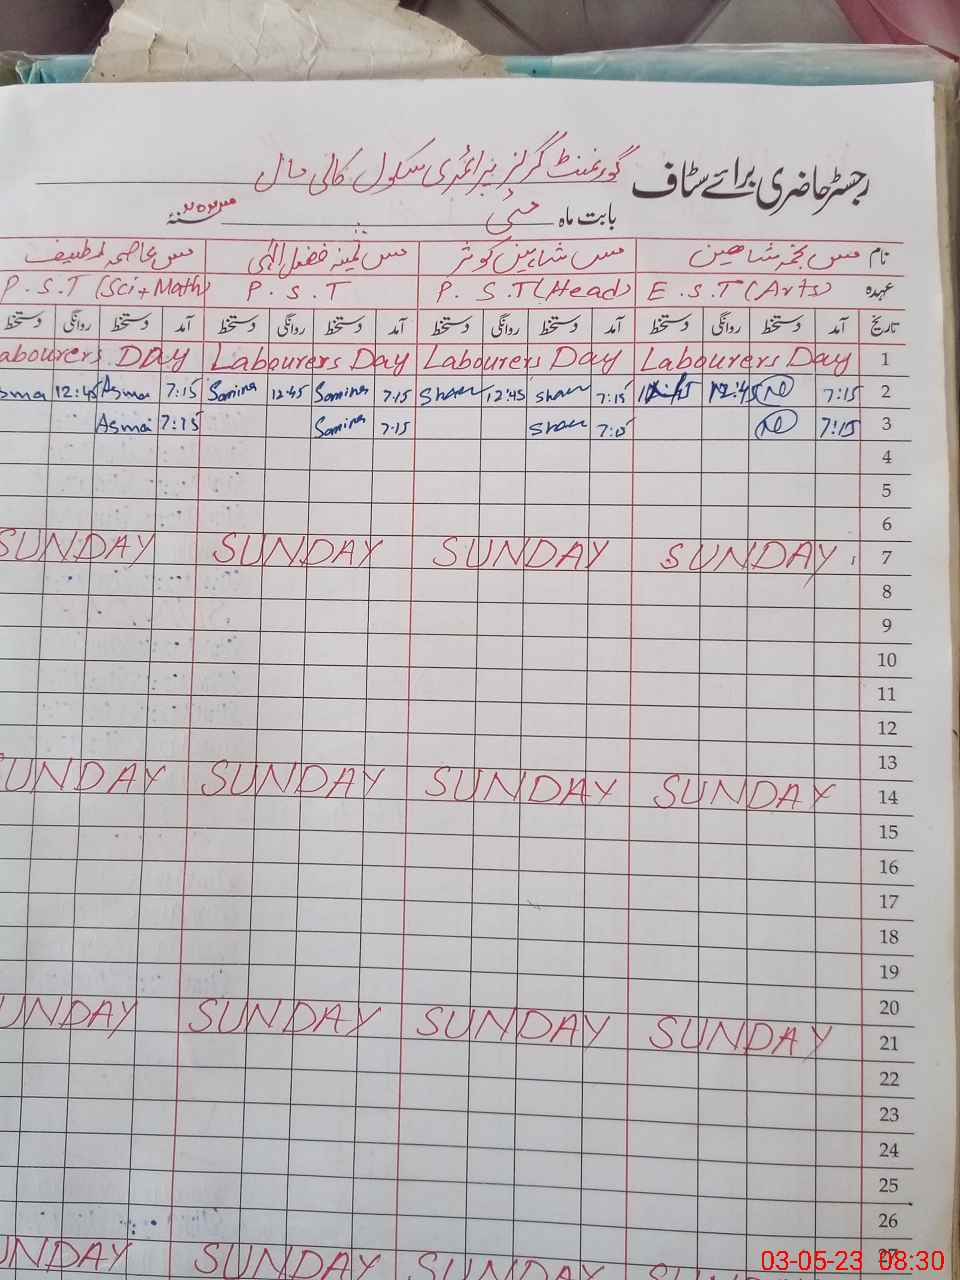 رجسٹر حاضری برائے سٹاف گورنمنٹ گرلز پرائمری سکول کالی مال
بابت ماہ مئی سن ۲۰۲۳ سنہ
نام مس نجمہ شاھین مس شاہین کوثر مس ثمینہ فضل الہٰی مس عاصمہ لطیف
عہدہ E.S.T (Arts) P.S.T (Head) P.S.T P.S.T (Sci+Math)
تاریخ آمد دستخط روانگی دستخط آمد دستخط روانگی دستخط آمد دستخط روانگی دستخط آمد دستخط روانگی دستخط
1 Labourers Day Labourers Day Labourers Day abourers Day
2 7:15 12:45 7:15 Shaw 12:45 Shaw 7:15 Samina 12:45 Samina 7:15 Asma 12:45 sma
3 7:15 7:15 Shaw 7:15 Samina 7:15 Asma
4
5
6
7 SUNDAY SUNDAY SUNDAY SUNDAY
8
9
10
11
12
13
14 SUNDAY SUNDAY SUNDAY SUNDAY
15
16
17
18
19
20
21 SUNDAY SUNDAY SUNDAY UNDAY
22
23
24
25
26
27 SUNDAY SUNDAY UNDAY
03-05-23 08:30